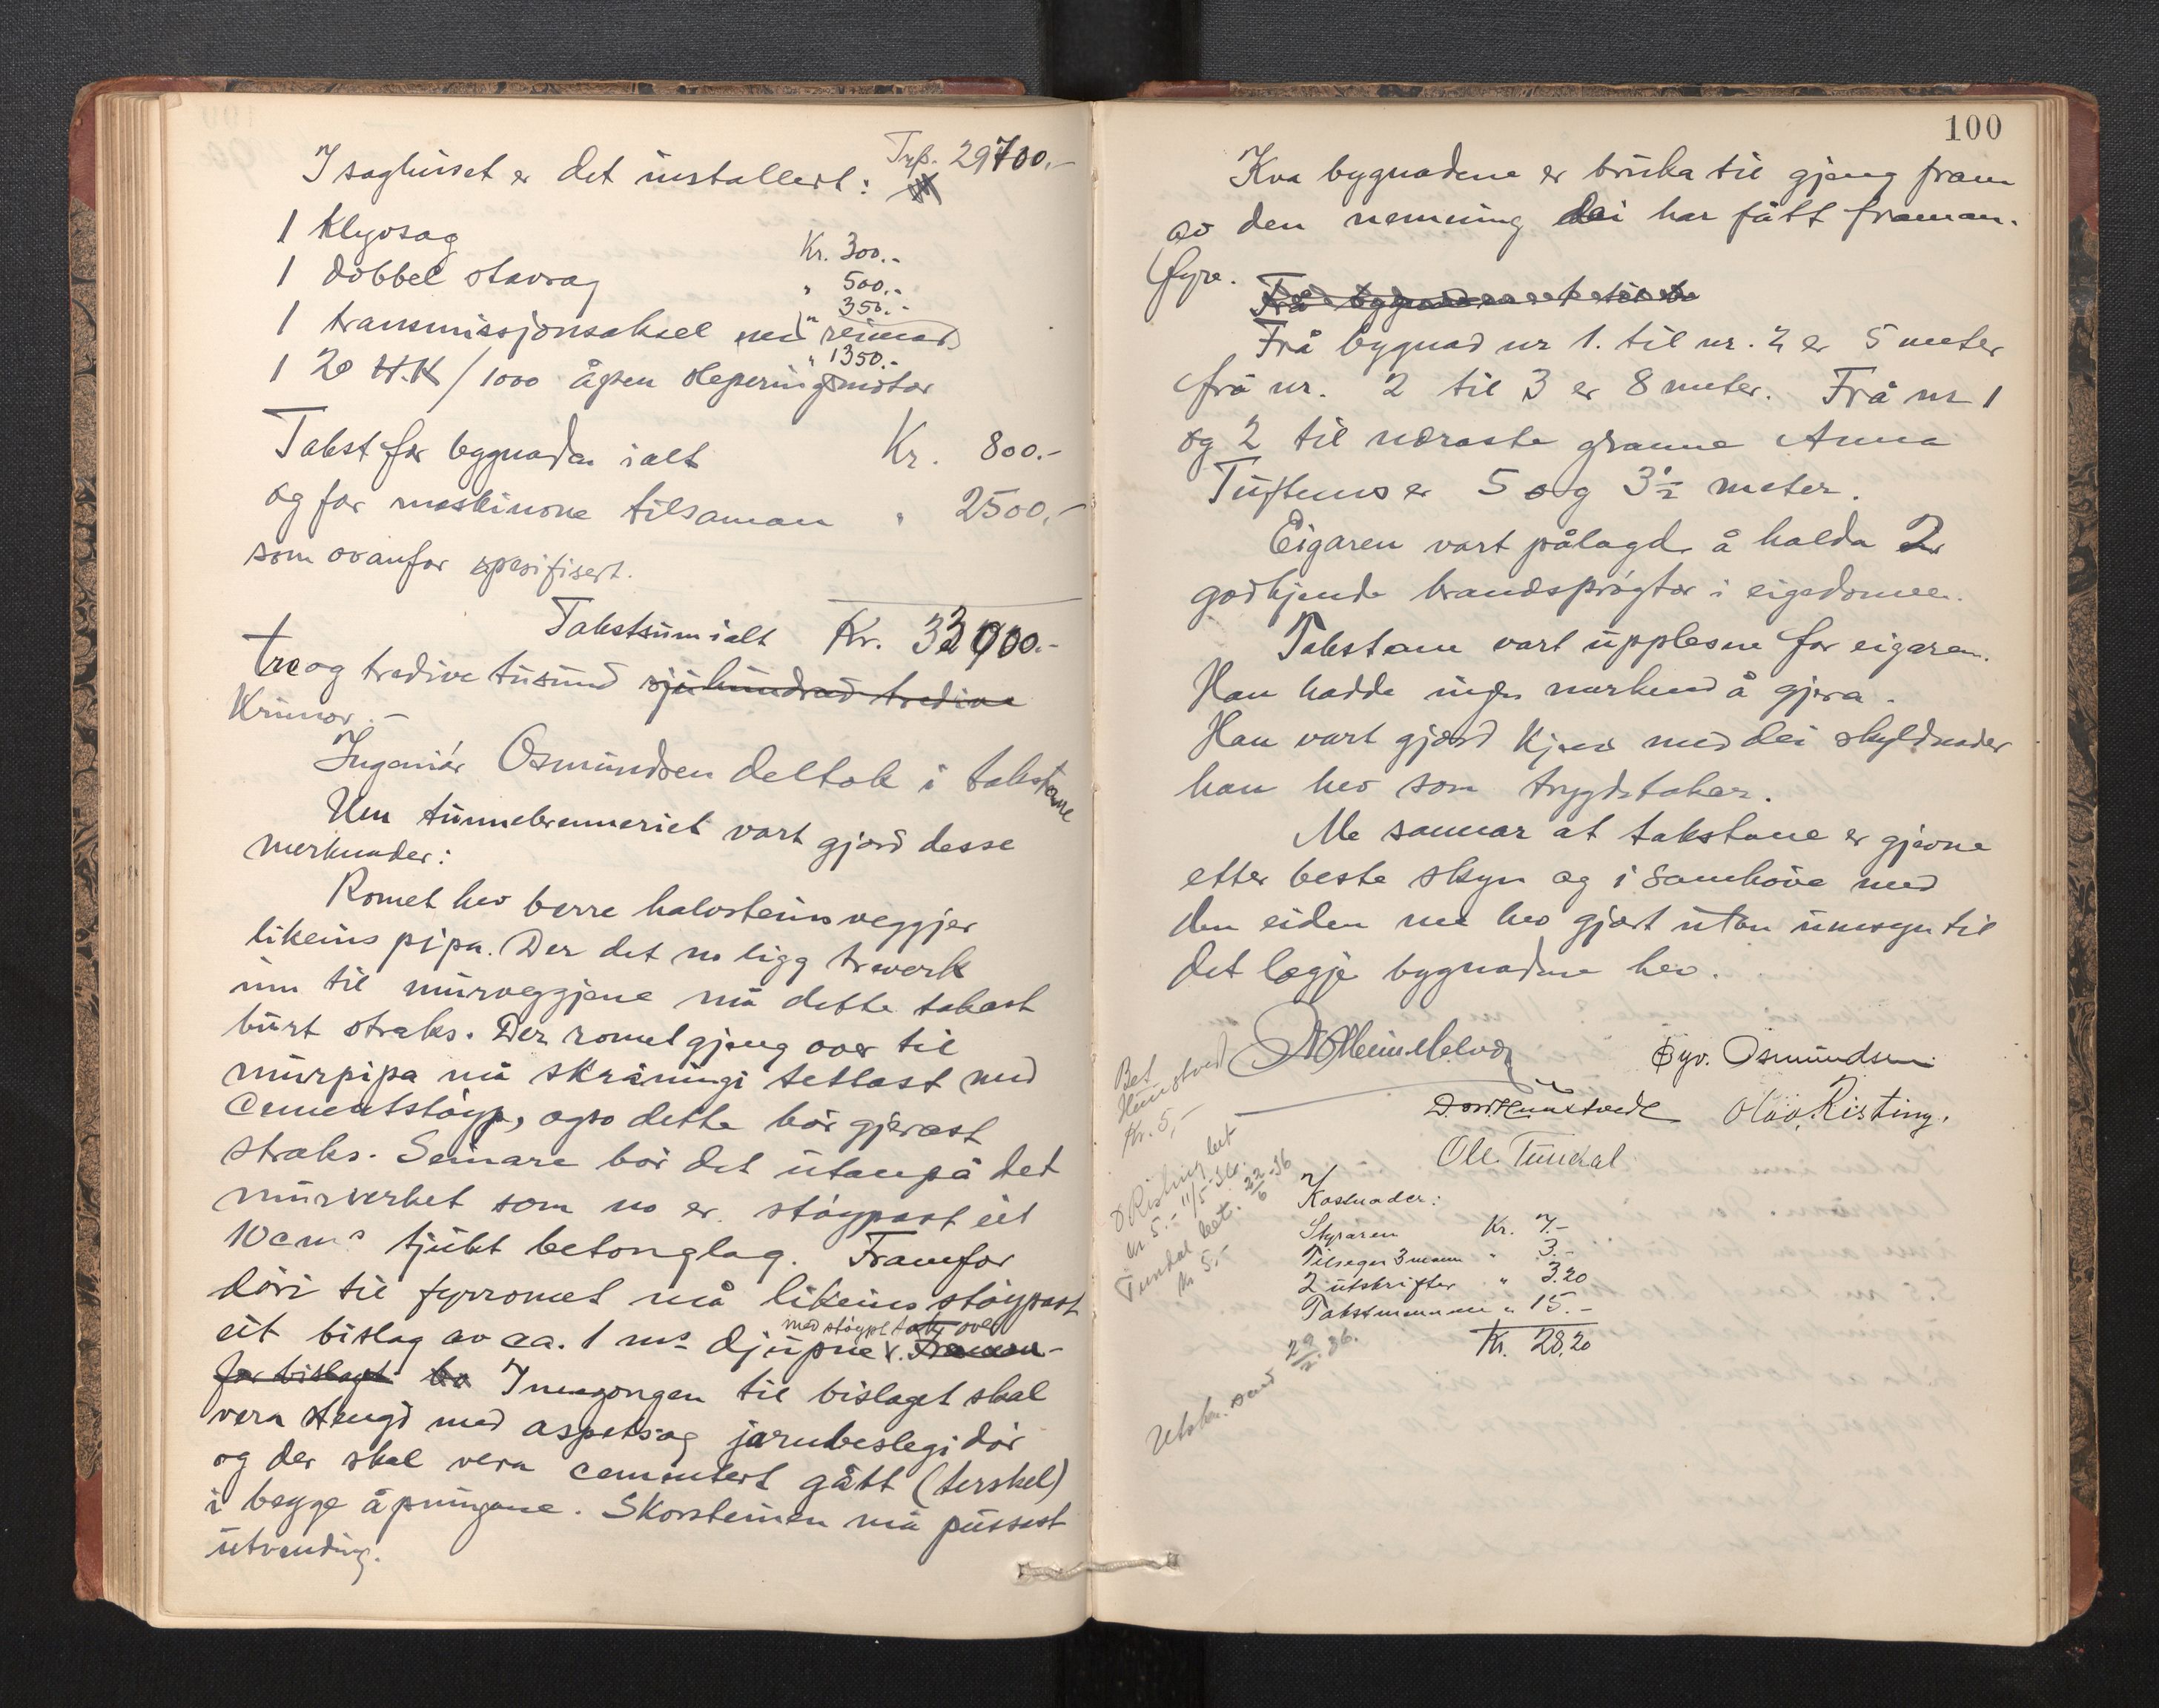 Trp. 29700.-
I saghuset er det installert:
1 Klyvsag Kr. 300.-
1 dobbel stavsag " 500.-
1 transmissjonsaksel med reimar " 350.-
1 20 H.K/1000 åpen sleperingsmotor " 1350.-
Takst for bygnaden ialt Kr. 800.-
og for maskinone tilsaman " 2500.-
som ovanfor spesifisert.
Takstsum ialt Kr. 33000.-
tre og tredive tusund sjuhundrad tredive
Krunor.-
Ingeniör Osmundsen deltok i takstane
Um tunnebrenneriet vart gjord desse
merknader:
Romet hev berre halvsteins veggjer
likeins pipa. Der det no ligg treverk
inn til murveggjene må dette takast
burt straks. Der romet gjeng over til
murpipa må skråningi tettast med
Cementstöyp, ogso dette bör gjerast
straks. Seinare bör det utanpå det
murverket som no er stöypast eit
10 cm's tjukt betonglag. Framfor
döri til fyrromet må likeins stöypast
med stöypt tak over
eit bislag av ca. 1 m's djupne. Framan-
for bislaget Inngongen til bislaget skal
vera stengd med asbets og jarnbeslegi dör
og der skal vera cementert gått (terskel)
i begge åpningane. Skorsteinen må pussast
utvendig.
100
Kva bygnadene er bruka til gjeng fram
av den nemning dei har fått framan-
fyre.
Frå bygnad nr 1. til nr. 2 er 5 meter
frå nr. 2 til 3 er 8 meter. Frå nr 1
og 2 til næraste granne Anna
Tuftens er 5 og 3½ meter.
Eigaren vart pålagd å halda 2
godkjende brandspröytor i eigedomen.
Takstane vart upplesne for eigaren.
Han hadde ingen merknad å gjera.
Han vart gjord kjend med dei skyldnader
han hev som trygdetakar.
Me sannar at takstane er gjevne
etter beste skyn og i samhöve med
den eiden me hev gjort utan umsyn til
det lægje bygnadene hev.
Eyv. Osmundsen
D. Hunstvedt Olav Risting.
Ole Tundal
Bet
Hunstved
Kr. 5,-
O Risting bet
kr. 5.- 11/5-36.
Tundal bet. 22/6-36
kr 5.-
Kostnader:
Styraren Kr. 7.-
Tilseger 3 mann " 3.-
2 utskrifter " 3.20
Takstmennene " 15.-
Kr. 28,20
Utskr. send 29/2.36.